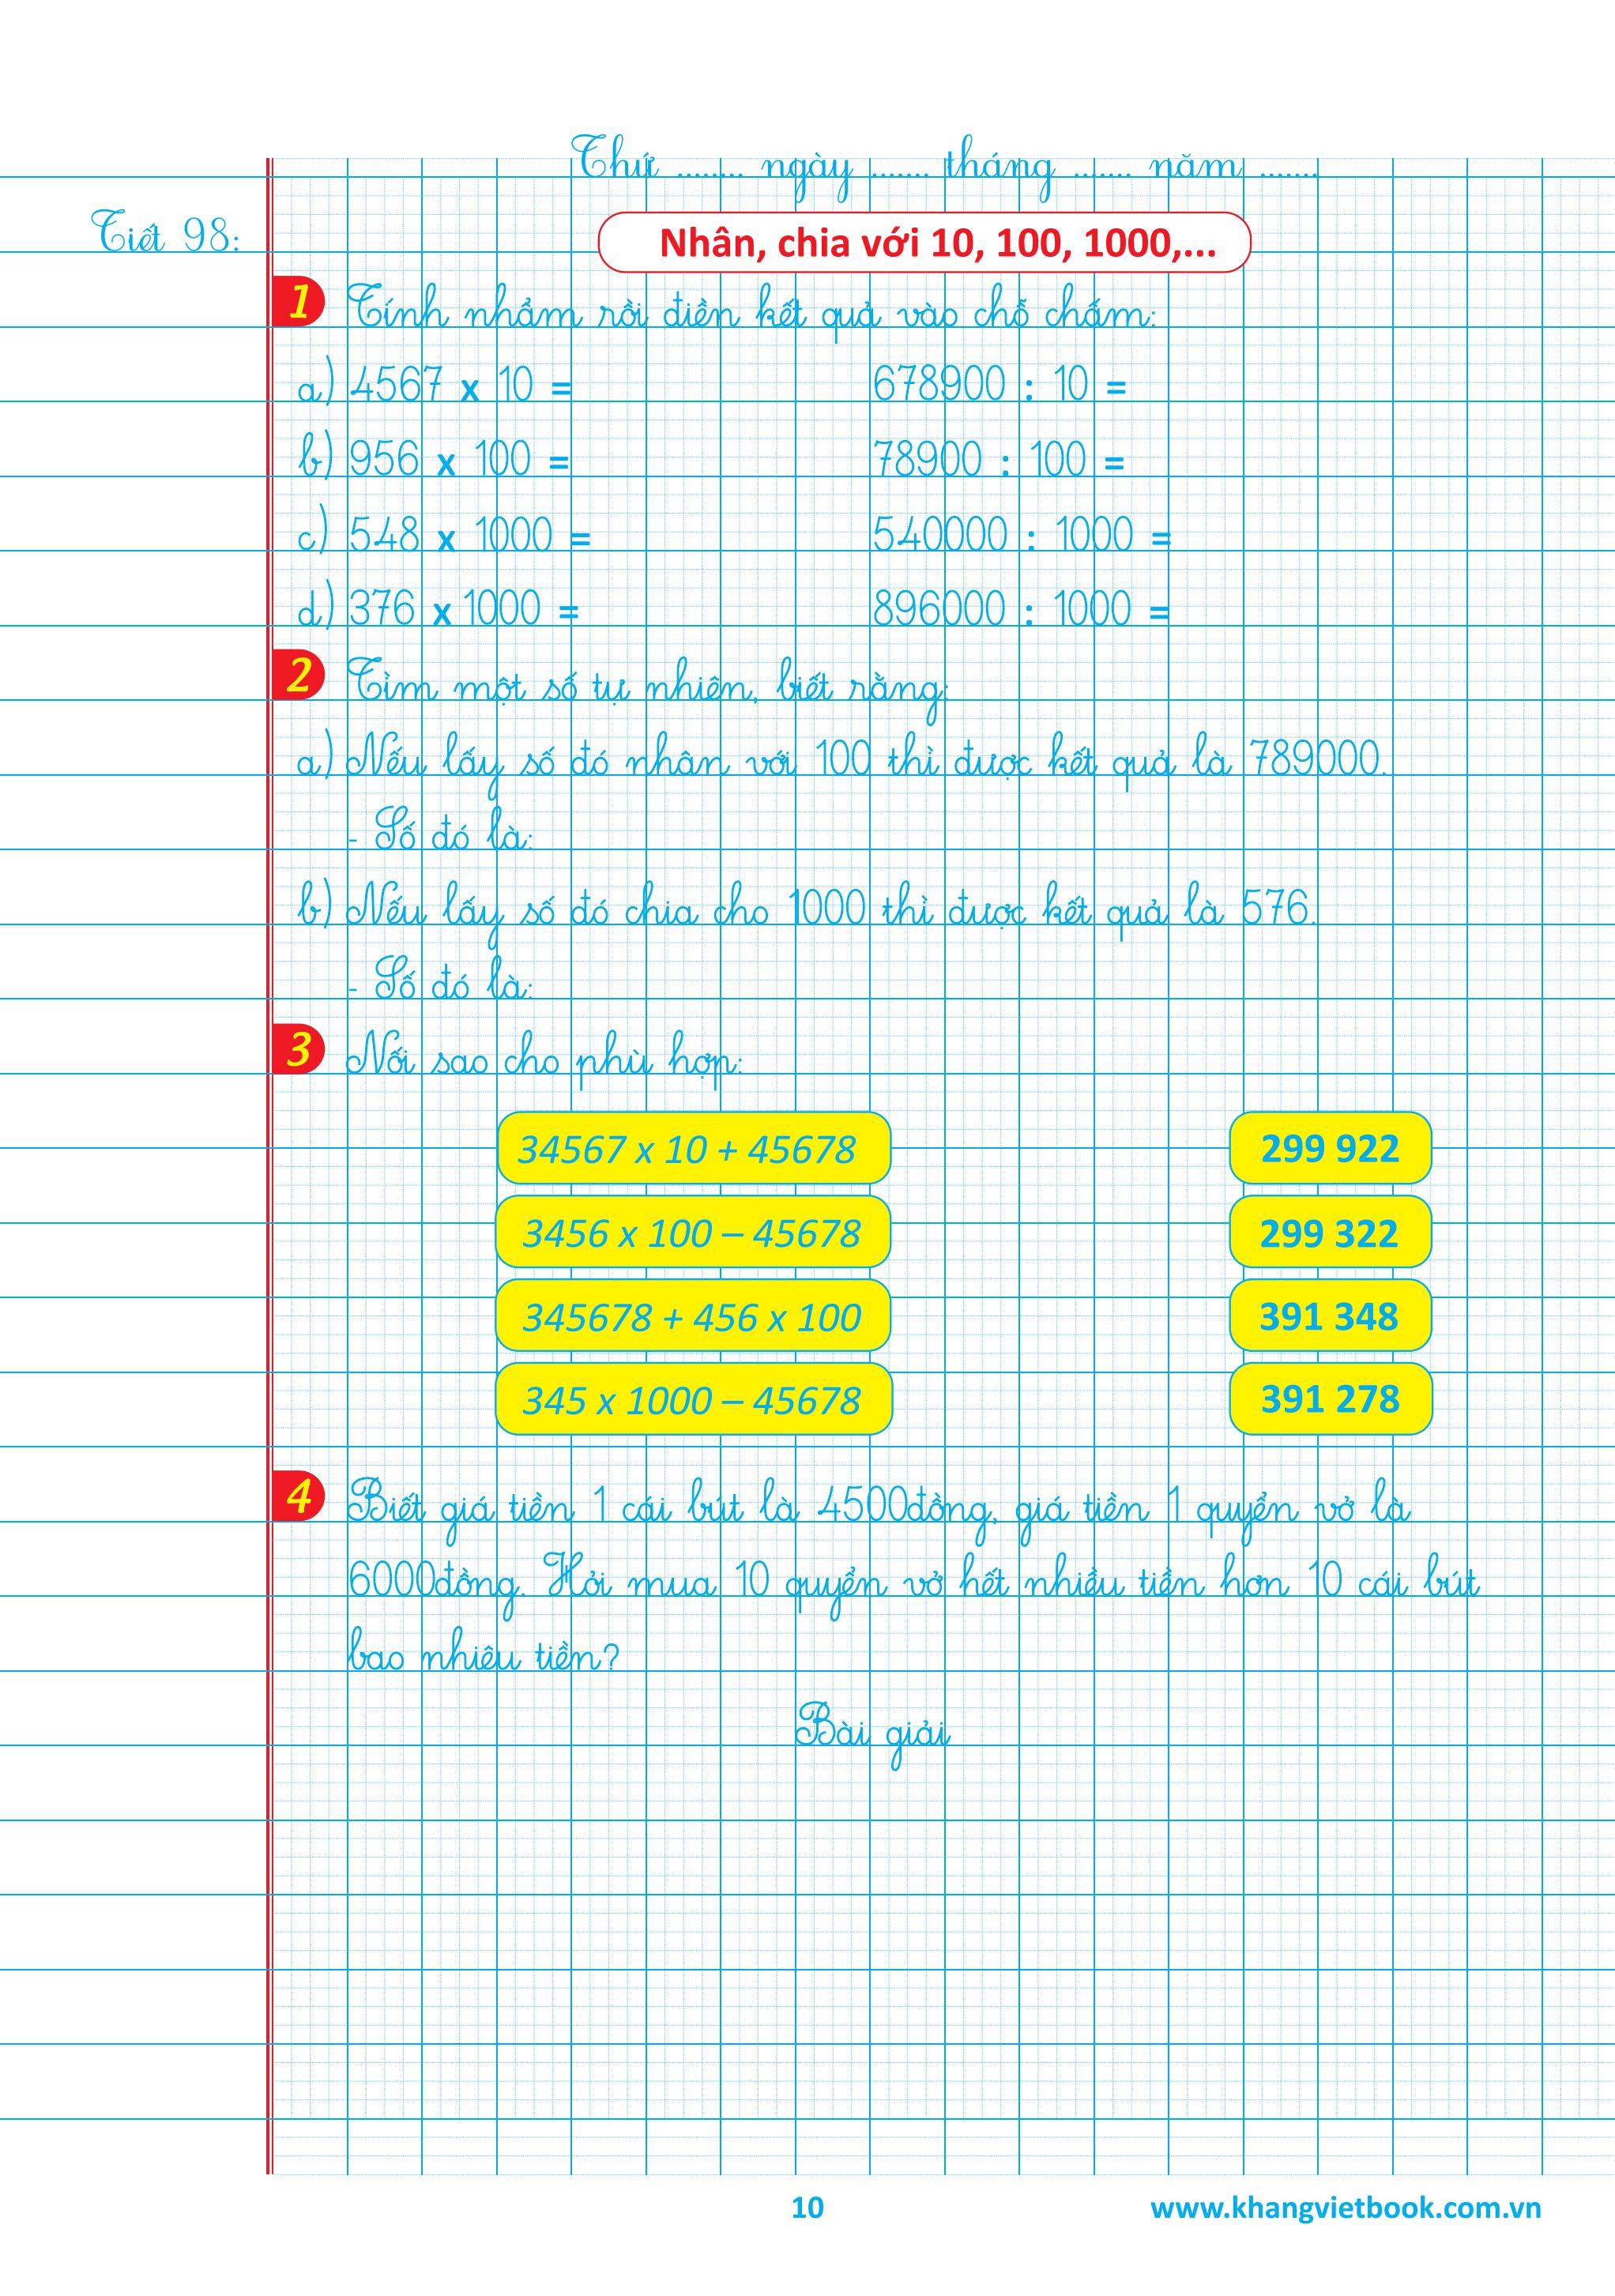 Thứ ........ ngày ....... tháng ....... năm .......
Tiết 98:
Nhân, chia với 10, 100, 1000,...
1 Tính nhẩm rồi điền kết quả vào chỗ chấm:
a) 4567 x 10 = 678900 : 10 =
b) 956 x 100 = 78900 : 100 =
c) 548 x 1000 = 540000 : 1000 =
d) 376 x 1000 = 896000 : 1000 =
2 Tìm một số tự nhiên, biết rằng:
a) Nếu lấy số đó nhân với 100 thì được kết quả là 789000.
- Số đó là:
b) Nếu lấy số đó chia cho 1000 thì được kết quả là 576.
- Số đó là:
3 Nối sao cho phù hợp:
34567 x 10 + 45678 299 922
3456 x 100 – 45678 299 322
345678 + 456 x 100 391 348
345 x 1000 – 45678 391 278
4 Biết giá tiền 1 cái bút là 4500đồng, giá tiền 1 quyển vở là
6000đồng. Hỏi mua 10 quyển vở hết nhiều tiền hơn 10 cái bút
bao nhiêu tiền?
Bài giải
10 www.khangvietbook.com.vn